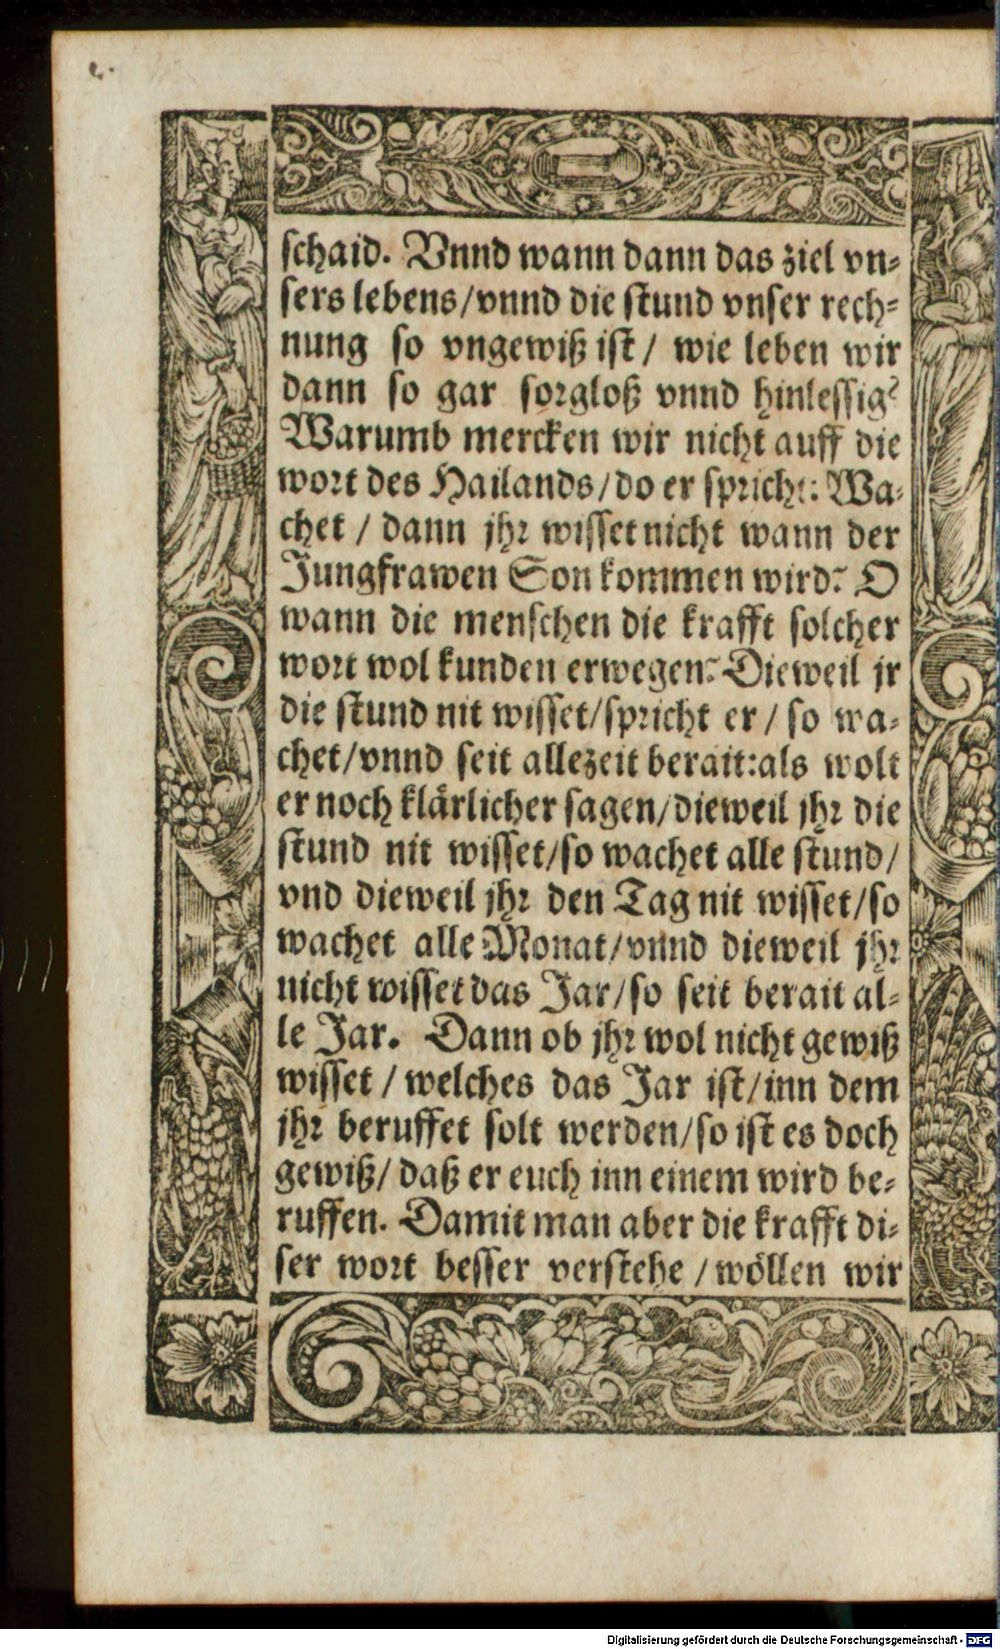 schaid. Vnnd wann dann das ziel vn-
sers lebens/vnnd die stund vnser rech-
nung so vngewiß ist/ wie leben wir
dann so gar sorgloß vnnd hinlessig?
Warumb mercken wir nicht auff die
wort des Hailands/do er spricht: Wa-
chet / dann jhr wisset nicht wann der
Jungfrawen Son kommen wird? O
wann die menschen die krafft solcher
wort wol kunden erwegen? Dieweil jr
die stund nit wisset/spricht er/ so wa-
chet/vnnd seit allezeit berait:als wolt
er noch klärlicher sagen/dieweil jhr die
stund nit wisset/so wachet alle stund/
vnd dieweil jhr den Tag nit wisset/so
wachet alle Monat/vnnd dieweil jhr
nicht wisset das Jar/so seit berait al-
le Jar. Dann ob jhr wol nicht gewiß
wisset / welches das Jar ist/inn dem
jhr beruffet solt werden/so ist es doch
gewiß/ daß er euch inn einem wird be-
ruffen. Damit man aber die krafft di-
ser wort besser verstehe /wöllen wir
Digitalisierung gefördert durch die Deutsche Forschungsgemeinschaft - DFG